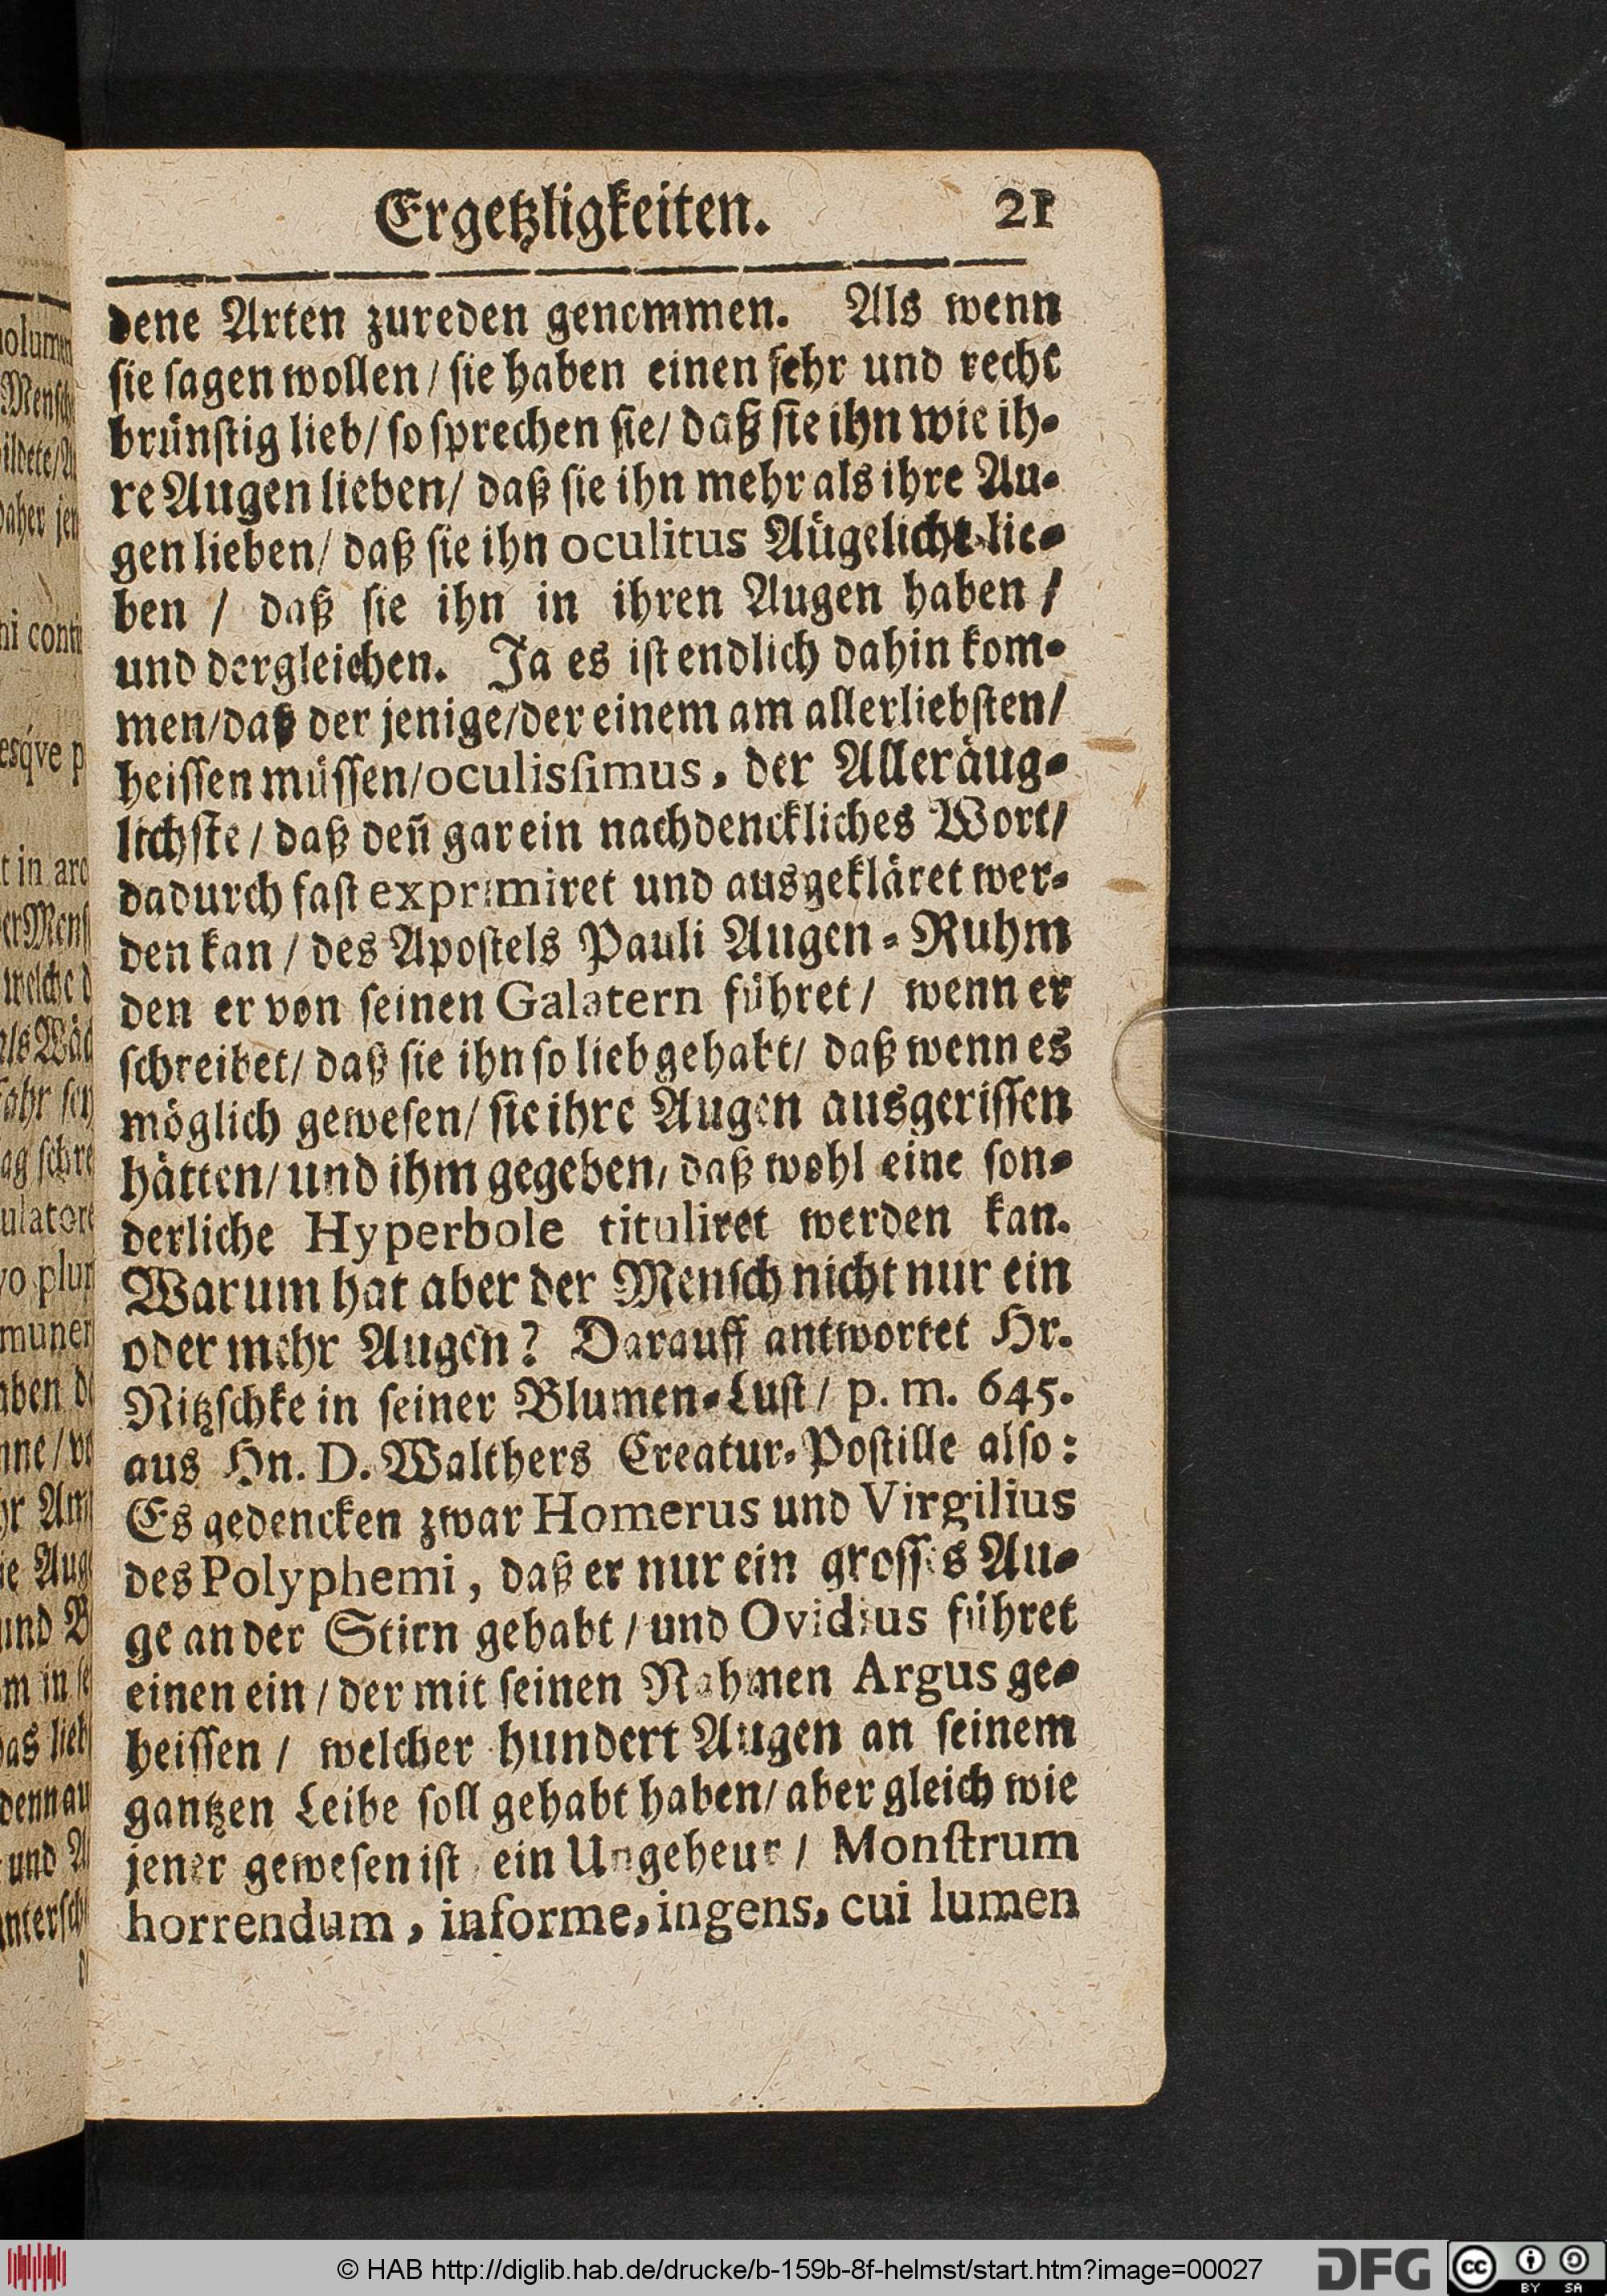 Ergetzligkeiten. 21
dene Arten zureden genommen. Als wenn
sie sagen wollen / sie haben einen sehr und recht
brünstig lieb / so sprechen sie / daß sie ihn wie ih-
re Augen lieben / daß sie ihn mehr als ihre Au-
gen lieben / daß sie ihn oculitus Aügelicht lie-
ben / daß sie ihn in ihren Augen haben /
und dergleichen. Ja es ist endlich dahin kom-
men / daß der jenige / der einem am allerliebsten /
heissen müssen / oculissimus, der Alleräug-
lichste / daß deñ gar ein nachdenckliches Wort /
dadurch fast exprimiret und ausgekläret wer-
den kan / des Apostels Pauli Augen-Ruhm
den er von seinen Galatern führet / wenn er
schreibet / daß sie ihn so lieb gehabt / daß wenn es
möglich gewesen / sie ihre Augen ausgerissen
hätten / und ihm gegeben / daß wohl eine son-
derliche Hyperbole tituliret werden kan.
Warum hat aber der Mensch nicht nur ein
oder mehr Augen? Darauff antwortet Hr.
Nitzschke in seiner Blumen-Lust / p. m. 645.
aus Hn. D. Walthers Creatur-Postille also:
Es gedencken zwar Homerus und Virgilius
des Polyphemi, daß er nur ein grosses Au-
ge an der Stirn gehabt / und Ovidius führet
einen ein / der mit seinen Nahmen Argus ge-
heissen / welcher hundert Augen an seinem
gantzen Leibe soll gehabt haben / aber gleich wie
jener gewesen ist ein Ungeheur / Monstrum
horrendum, informe, ingens, cui lumen
© HAB http://diglib.hab.de/drucke/b-159b-8f-helmst/start.htm?image=00027
DFG
cc BY SA